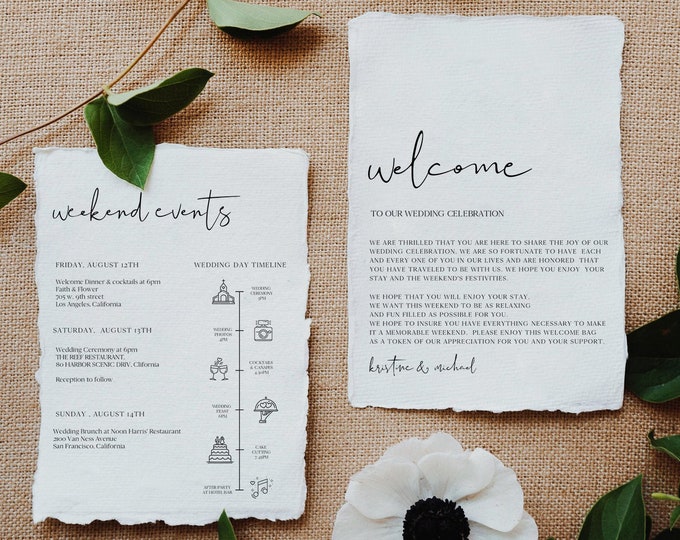 weekend events
FRIDAY, AUGUST 12TH
Welcome Dinner & cocktails at 6pm
Faith & Flower
705 w. 9th street
Los Angeles, California
SATURDAY, AUGUST 13TH
Wedding Ceremony at 6pm
THE REEF RESTAURANT,
80 HARBOR SCENIC DRIV, Clifornia
Reception to follow
SUNDAY , AUGUST 14TH
Wedding Brunch at Noon Harris' Restaurant
2100 Van Ness Avenue
San Francisco, California
WEDDING DAY TIMELINE
WEDDING
CEREMONY
3PM
WEDDING
PHOTOS
4PM
COCKTAILS
& CANAPES
4:30PM
WEDDING
FEAST
6PM
CAKE
CUTTING
7:30PM
AFTER PARTY
AT HOTEL BAR
welcome
TO OUR WEDDING CELEBRATION
WE ARE THRILLED THAT YOU ARE HERE TO SHARE THE JOY OF OUR
WEDDING CELEBRATION. WE ARE SO FORTUNATE TO HAVE EACH
AND EVERY ONE OF YOU IN OUR LIVES AND ARE HONORED THAT
YOU HAVE TRAVELED TO BE WITH US. WE HOPE YOU ENJOY YOUR
STAY AND THE WEEKEND'S FESTIVITIES.
WE HOPE THAT YOU WILL ENJOY YOUR STAY.
WE WANT THIS WEEKEND TO BE AS RELAXING
AND FUN FILLED AS POSSIBLE FOR YOU.
WE HOPE TO INSURE YOU HAVE EVERYTHING NECESSARY TO MAKE
IF A MEMORABLE WEEKEND. PLEASE ENJOY THIS WELCOME BAG
AS A TOKEN OF OUR APPRECIATION FOR YOU AND YOUR SUPPORT.
kristine & michael